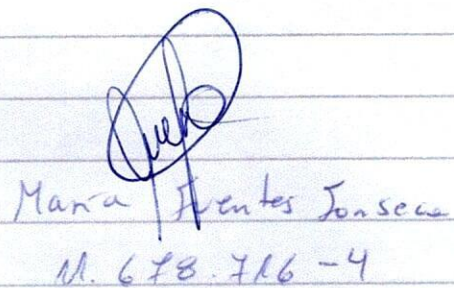 María Fuentes Fonseca
11.678.716-4